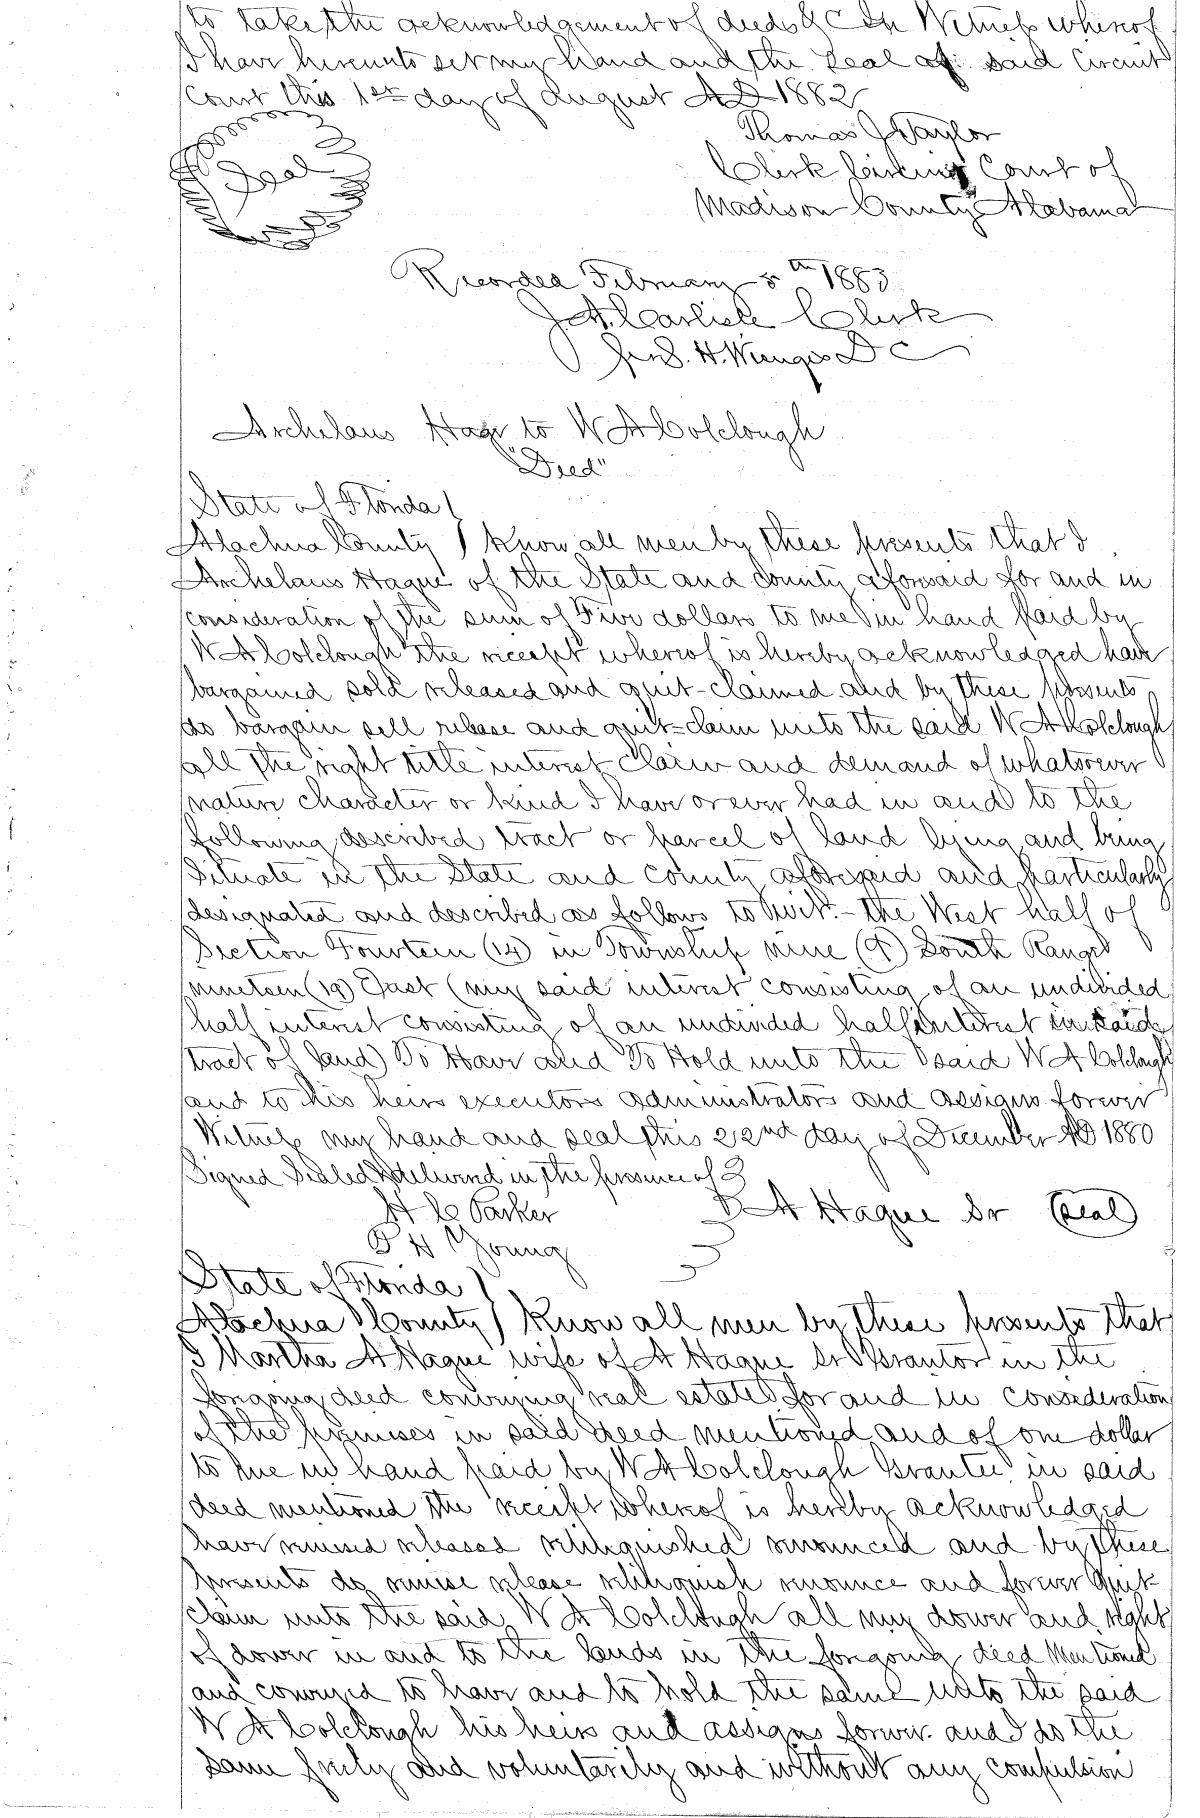 to take the acknowledgement of deeds &c In Witness whereof
I have hereunto set my hand and the seal of said Circuit
Court this 1st day of August AD 1882
Thomas J Taylor
Seal
Clerk Circuit Court of
Madison County Alabama
Recorded February 5th 1883
J. A. Carlisle Clerk
H. Wienges D C
Archelaus Hague to W A Colclough
"Deed"
State of Florida
Alachua County Know all men by these presents that I
Archelaus Hague of the State and county aforesaid for and in
consideration of the sum of Five dollars to me in hand paid by
W A Colclough the receipt whereof is hereby acknowledged have
bargained sold released and quit-claimed and by these presents
do bargain sell release and quit-claim unto the said W A Colclough
all the right title interest claim and demand of whatsoever
nature character or kind I have or ever had in and to the
following described tract or parcel of land lying and being
situate in the State and county aforesaid and particularly
designated and described as follows to wit:- the West half of
Section Fourteen (14) in Township nine (9) South Range
nineteen (19) East (my said interest consisting of an undivided
half interest consisting of an undivided half interest in said
tract of land) To Have and To Hold unto the said W A Colclough
and to his heirs executors administrators and assigns forever
Witness my hand and seal this 22nd day of December AD 1880
Signed Sealed & delivered in the presence of
H C Parker
A Hague Sr (Seal)
P H Young
State of Florida
Alachua County Know all men by these presents that
I Martha A Hague wife of A Hague Sr Grantor in the
forgoing deed conveying real estate for and in consideration
of the premises in said deed mentioned and of one dollar
to me in hand paid by W A Colclough Grantee in said
deed mentioned the receipt whereof is hereby acknowledged
have remised released relinquished renounced and by these
presents do remise release relinquish renounce and forever quit-
claim unto the said W A Colclough all my dower and right
of dower in and to the lands in the forgoing deed mentioned
and conveyed to have and to hold the same unto the said
W A Colclough his heirs and assigns forever. and I do the
same freely and voluntarily and without any compulsion